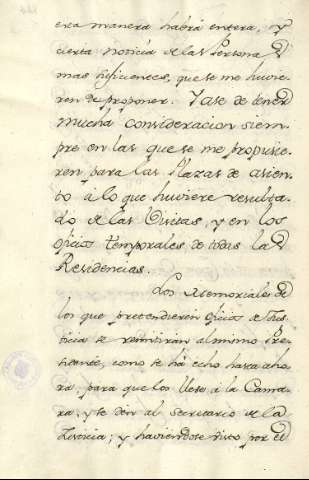 esta manera habrá entera, y
cierta noticia de las Personas
mas suficientes, que se me huvie-
ren de proponer. Yase de tener
mucha consideracion siem-
pre en las que se me propusie-
ren para las Plazas de asien-
to á lo que huviere resulta-
do de las Visitas, y en los
oficios temporales de todas las
Residencias.
Los Memoriales de
los que pretendieren oficios de Jus-
ticia se remitirán al mismo Pre-
sidente, como se há echo hasta aho-
ra, para que los lleve á la Cama-
ra, y se dén al Secretario de la
Justicia; y haviendose visto por el